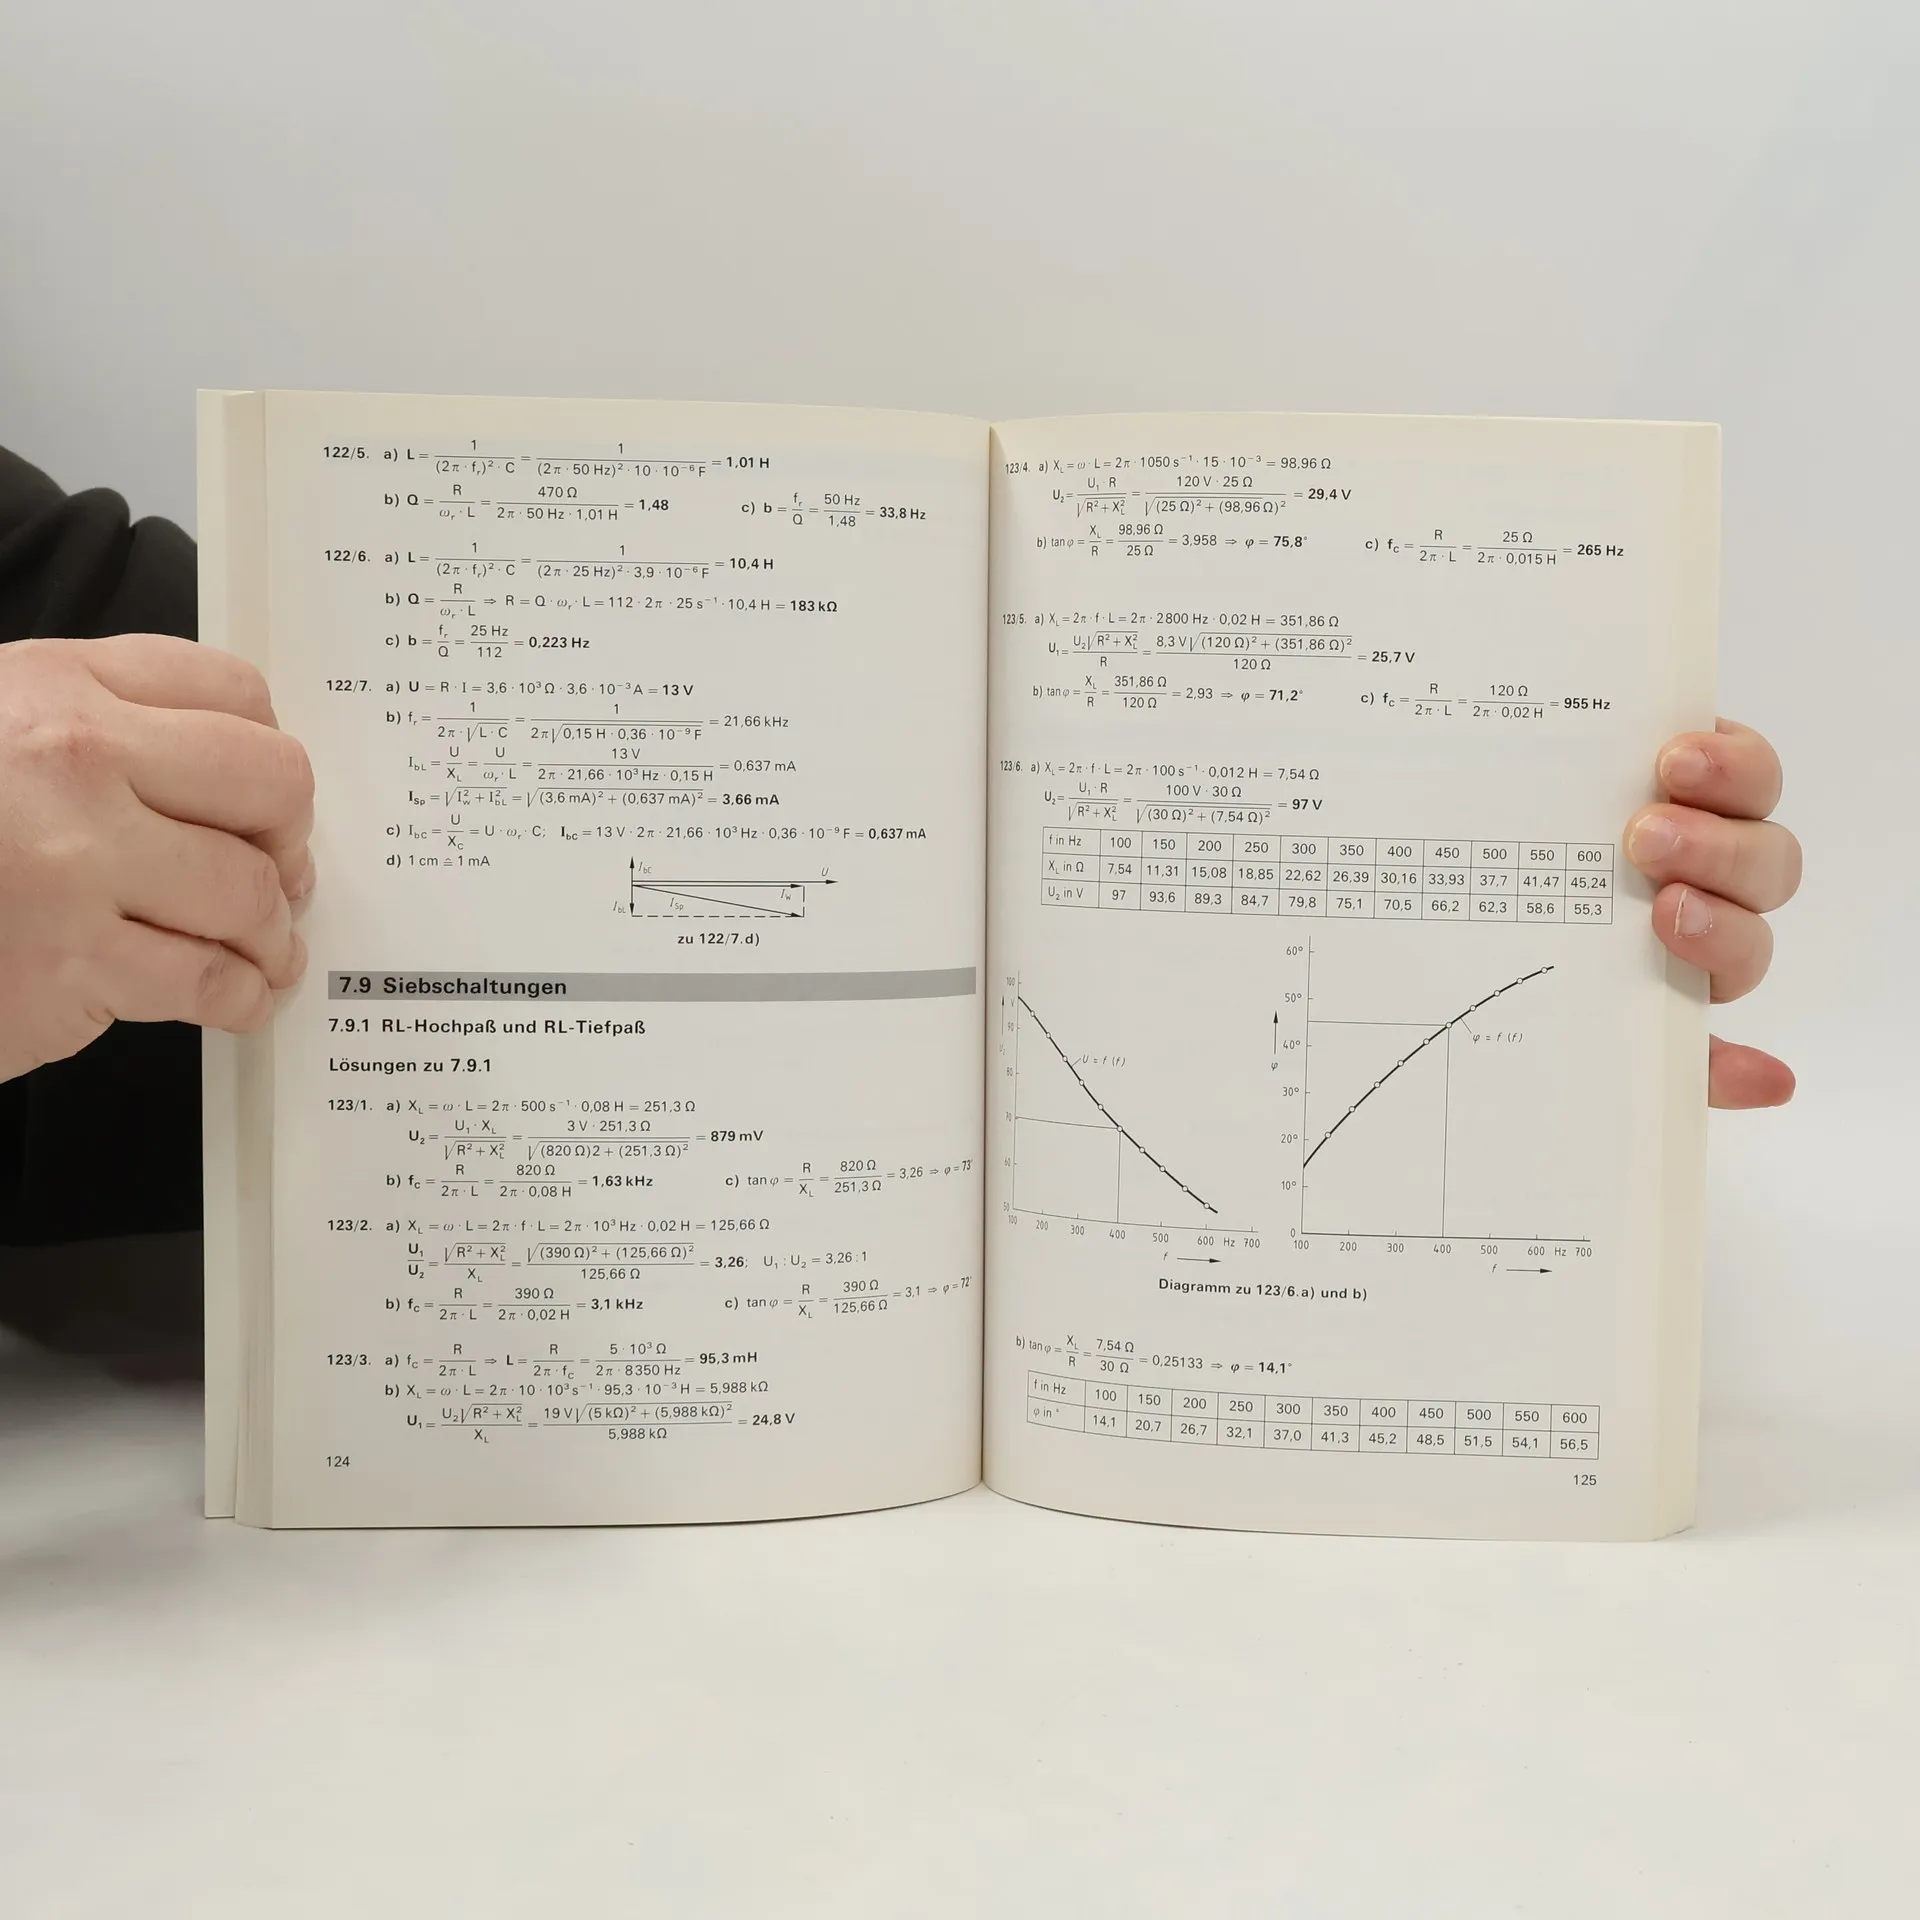 122/5. a) L = 1 / ((2π · fᵣ)² · C) = 1 / ((2π · 50 Hz)² · 10 · 10⁻⁶ F) = 1,01 H
b) Q = R / (ωᵣ · L) = 470 Ω / (2π · 50 Hz · 1,01 H) = 1,48 c) b = fᵣ / Q = 50 Hz / 1,48 = 33,8 Hz
122/6. a) L = 1 / ((2π · fᵣ)² · C) = 1 / ((2π · 25 Hz)² · 3,9 · 10⁻⁶ F) = 10,4 H
b) Q = R / (ωᵣ · L) ⇒ R = Q · ωᵣ · L = 112 · 2π · 25 s⁻¹ · 10,4 H = 183 kΩ
c) b = fᵣ / Q = 25 Hz / 112 = 0,223 Hz
122/7. a) U = R · I = 3,6 · 10³ Ω · 3,6 · 10⁻³ A = 13 V
b) fᵣ = 1 / (2π · √(L · C)) = 1 / (2π √(0,15 H · 0,36 · 10⁻⁹ F)) = 21,66 kHz
I_bL = U / X_L = U / (ωᵣ · L) = 13 V / (2π · 21,66 · 10³ Hz · 0,15 H) = 0,637 mA
I_Sp = √(I_w² + I_bL²) = √((3,6 mA)² + (0,637 mA)²) = 3,66 mA
c) I_bC = U / X_C = U · ωᵣ · C; I_bC = 13 V · 2π · 21,66 · 10³ Hz · 0,36 · 10⁻⁹ F = 0,637 mA
d) 1 cm ≙ 1 mA
I_bC U
I_w
I_bL I_Sp
zu 122/7.d)
7.9 Siebschaltungen
7.9.1 RL-Hochpaß und RL-Tiefpaß
Lösungen zu 7.9.1
123/1. a) X_L = ω · L = 2π · 500 s⁻¹ · 0,08 H = 251,3 Ω
U₂ = U₁ · X_L / √(R² + X_L²) = 3 V · 251,3 Ω / √((820 Ω)2 + (251,3 Ω)²) = 879 mV
b) f_c = R / (2π · L) = 820 Ω / (2π · 0,08 H) = 1,63 kHz c) tan φ = R / X_L = 820 Ω / 251,3 Ω = 3,26 ⇒ φ = 73°
123/2. a) X_L = ω · L = 2π · f · L = 2π · 10³ Hz · 0,02 H = 125,66 Ω
U₁ / U₂ = √(R² + X_L²) / X_L = √((390 Ω)² + (125,66 Ω)²) / 125,66 Ω = 3,26; U₁ : U₂ = 3,26 : 1
b) f_c = R / (2π · L) = 390 Ω / (2π · 0,02 H) = 3,1 kHz c) tan φ = R / X_L = 390 Ω / 125,66 Ω = 3,1 ⇒ φ = 72°
123/3. a) f_c = R / (2π · L) ⇒ L = R / (2π · f_c) = 5 · 10³ Ω / (2π · 8350 Hz) = 95,3 mH
b) X_L = ω · L = 2π · 10 · 10³ s⁻¹ · 95,3 · 10⁻³ H = 5,988 kΩ
U₁ = U₂ √(R² + X_L²) / X_L = 19 V √((5 kΩ)² + (5,988 kΩ)²) / 5,988 kΩ = 24,8 V
124
123/4. a) X_L = ω · L = 2π · 1050 s⁻¹ · 15 · 10⁻³ = 98,96 Ω
U₂ = U₁ · R / √(R² + X_L²) = 120 V · 25 Ω / √((25 Ω)² + (98,96 Ω)²) = 29,4 V
b) tan φ = X_L / R = 98,96 Ω / 25 Ω = 3,958 ⇒ φ = 75,8° c) f_c = R / (2π · L) = 25 Ω / (2π · 0,015 H) = 265 Hz
123/5. a) X_L = 2π · f · L = 2π · 2800 Hz · 0,02 H = 351,86 Ω
U₁ = U₂ √(R² + X_L²) / R = 8,3 V √((120 Ω)² + (351,86 Ω)²) / 120 Ω = 25,7 V
b) tan φ = X_L / R = 351,86 Ω / 120 Ω = 2,93 ⇒ φ = 71,2° c) f_c = R / (2π · L) = 120 Ω / (2π · 0,02 H) = 955 Hz
123/6. a) X_L = 2π · f · L = 2π · 100 s⁻¹ · 0,012 H = 7,54 Ω
U₂ = U₁ · R / √(R² + X_L²) = 100 V · 30 Ω / √((30 Ω)² + (7,54 Ω)²) = 97 V
f in Hz 100 150 200 250 300 350 400 450 500 550 600
X_L in Ω 7,54 11,31 15,08 18,85 22,62 26,39 30,16 33,93 37,7 41,47 45,24
U₂ in V 97 93,6 89,3 84,7 79,8 75,1 70,5 66,2 62,3 58,6 55,3
100
V
90
U₂
80
70
60
50
U = f (f)
100 200 300 400 500 600 Hz 700
f
60°
50°
40°
φ
30°
20°
10°
0
φ = f (f)
100 200 300 400 500 600 Hz 700
f
Diagramm zu 123/6.a) und b)
b) tan φ = X_L / R = 7,54 Ω / 30 Ω = 0,25133 ⇒ φ = 14,1°
f in Hz 100 150 200 250 300 350 400 450 500 550 600
φ in ° 14,1 20,7 26,7 32,1 37,0 41,3 45,2 48,5 51,5 54,1 56,5
125